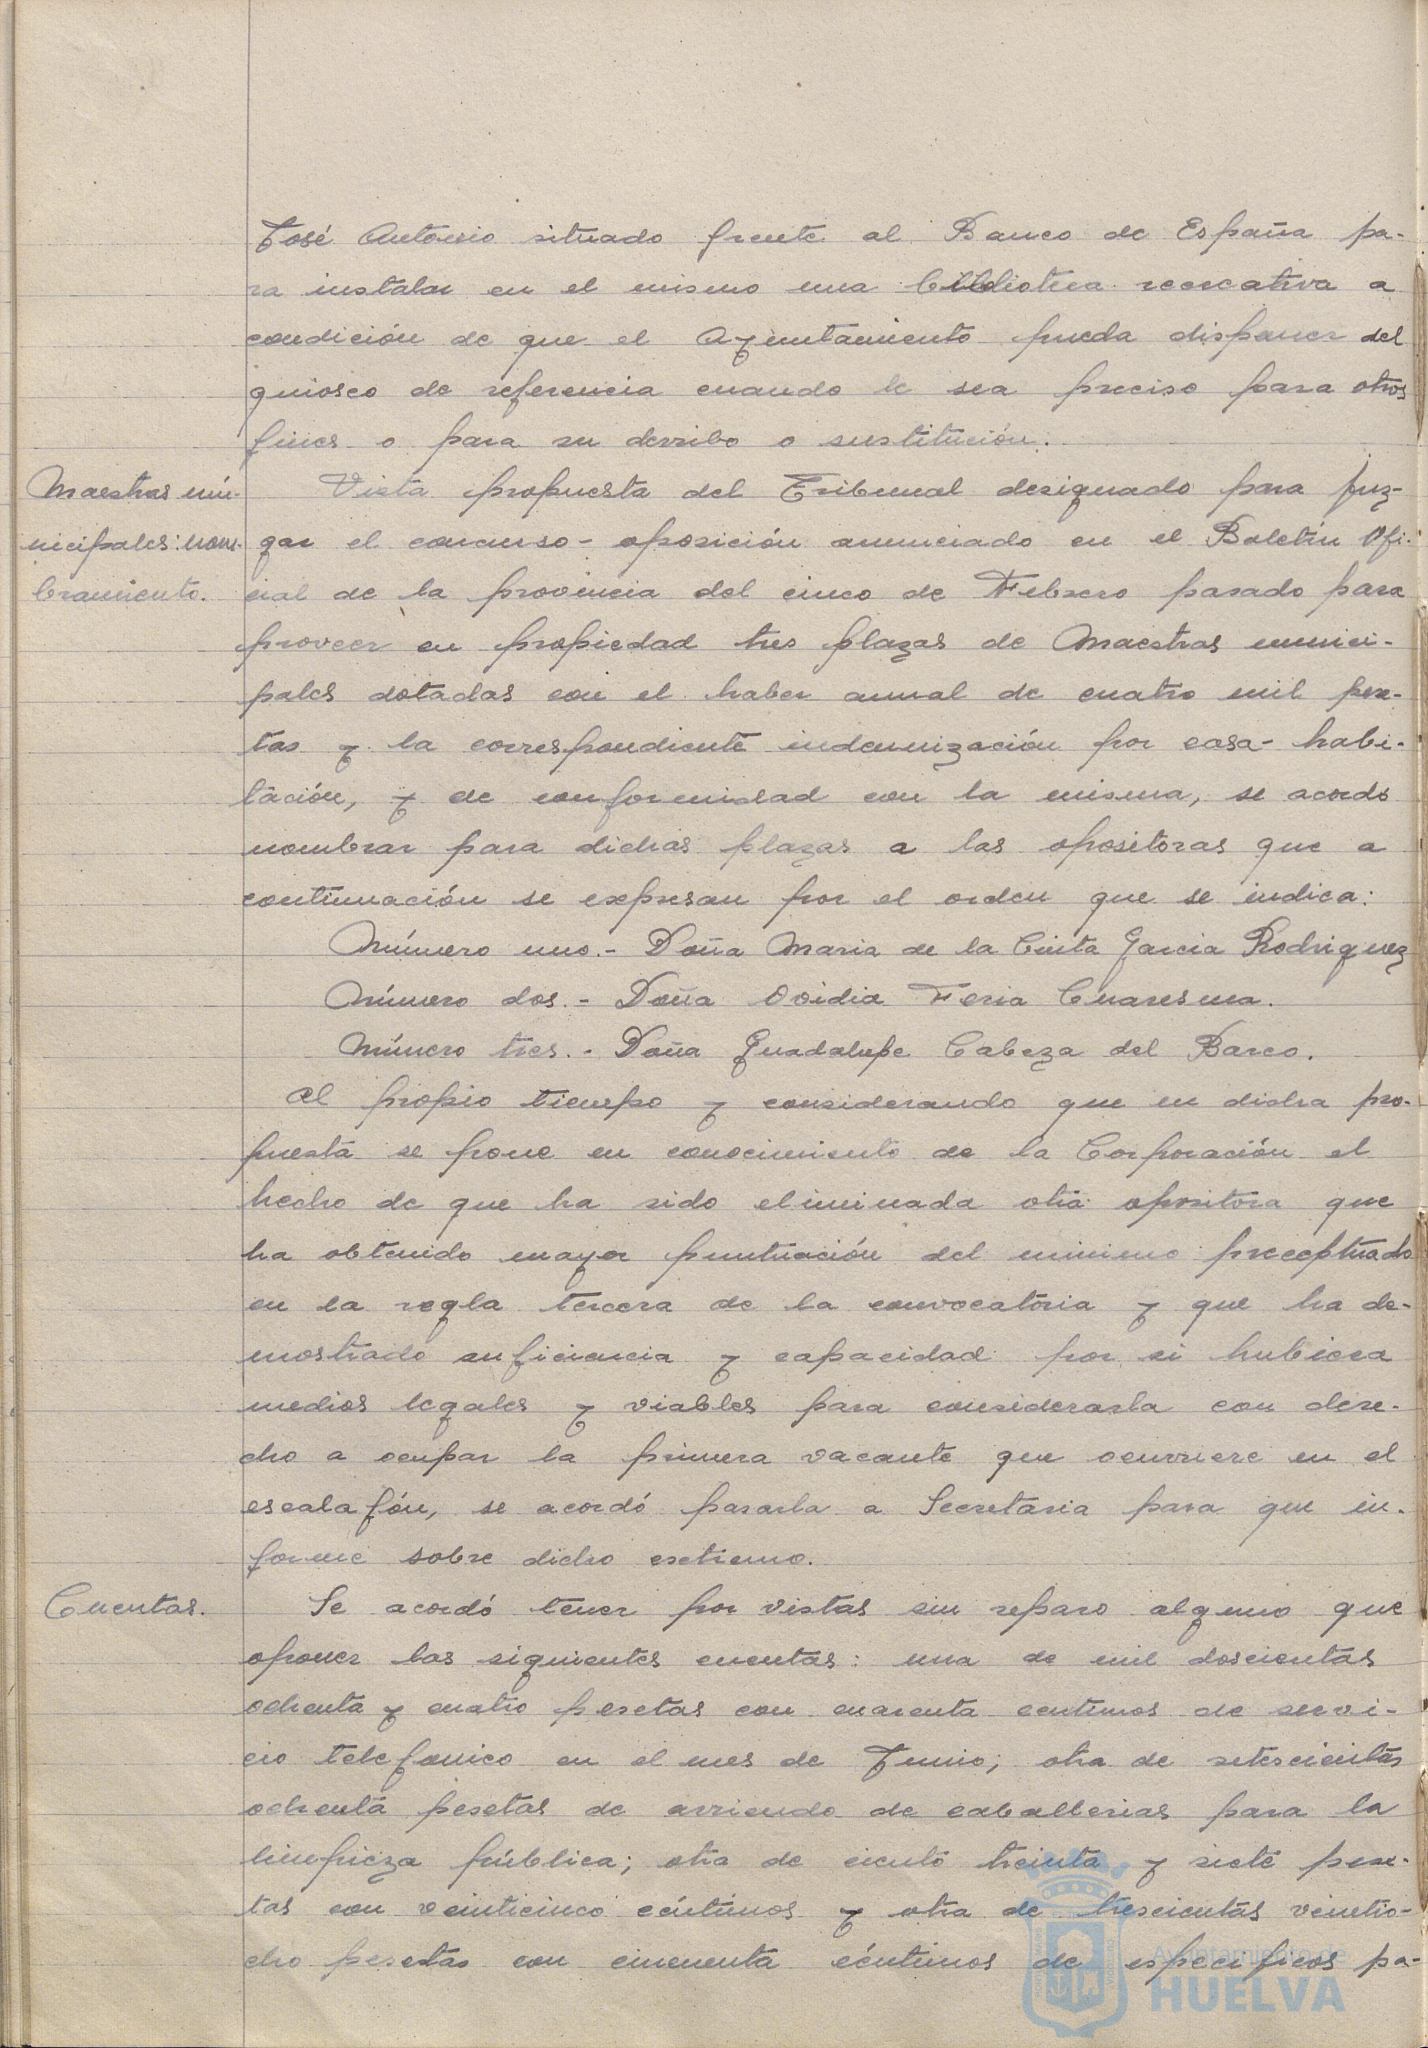 José Antonio situado frente al Banco de España pa-
ra instalar en el mismo una biblioteca recreativa a
condición de que el Ayuntamiento pueda disponer del
quiosco de referencia cuando le sea preciso para otros
fines o para su derribo o sustitución.
Maestras mu-
nicipales: nom-
bramiento.
Vista propuesta del Tribunal designado para juz-
gar el concurso-oposición anunciado en el Boletín Ofi-
cial de la provincia del cinco de Febrero pasado para
proveer en propiedad tres plazas de Maestras munici-
pales dotadas con el haber anual de cuatro mil pese-
tas y la correspondiente indemnización por casa-habi-
tación, y de conformidad con la misma, se acordó
nombrar para dichas plazas a las opositoras que a
continuación se expresan por el orden que se indica:
Número uno.- Doña Maria de la Cinta Garcia Rodriguez
Número dos.- Doña Ovidia Feria Cuaresma.
Número tres.- Doña Guadalupe Cabeza del Barco.
Al propio tiempo y considerando que en dicha pro-
puesta se pone en conocimiento de la Corporación el
hecho de que ha sido eliminada otra opositora que
ha obtenido mayor puntuación del minimo preceptuado
en la regla tercera de la convocatoria y que ha de-
mostrado suficiencia y capacidad por si hubiera
medios legales y viables para considerarla con dere-
cho a ocupar la primera vacante que ocurriere en el
escalafón, se acordó pasarla a Secretaria para que in-
forme sobre dicho extremo.
Cuentas.
Se acordó tener por vistas sin reparo alguno que
oponer las siguientes cuentas: una de mil doscientas
ochenta y cuatro pesetas con cuarenta centimos de servi-
cio telefonico en el mes de Junio; otra de setescientas
ochenta pesetas de arriendo de caballerias para la
limpieza pública; otra de ciento treinta y siete pese-
tas con veinticinco céntimos y otra de trescientas veintio-
cho pesetas con cincuenta céntimos de especificos pa-
Ayuntamiento de
HUELVA